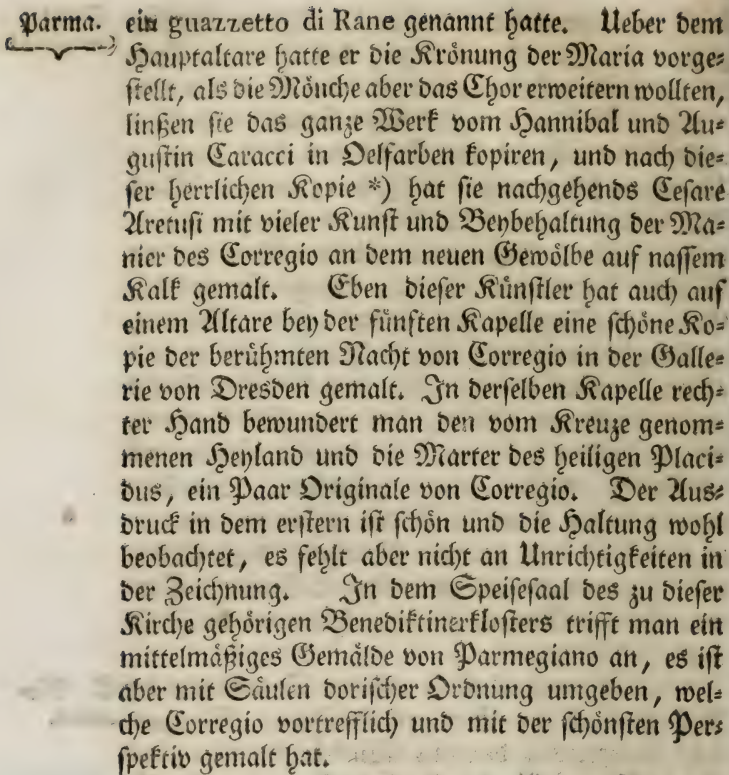 Parma. ein guazzetto di Rane genannt hatte. Ueber dem
Hauptaltare hatte er die Krönung der Maria vorge⸗
stellt, als die Mönche aber das Chor erweitern wollten,
linßen sie das ganze Werk vom Hannibal und Au⸗
gustin Caracci in Oelfarben kopiren, und nach die⸗
ser herrlichen Kopie *) hat sie nachgehends Cesare
Aretusi mit vieler Kunst und Beybehaltung der Ma⸗
nier des Corregio an dem neuen Gewölbe auf nassem
Kalk gemalt. Eben dieser Künstler hat auch auf
einem Altare bey der fünften Kapelle eine schöne Ko⸗
pie der berühmten Nacht von Corregio in der Galle⸗
rie von Dresden gemalt. In derselben Kapelle rech⸗
ter Hand bewundert man den vom Kreuze genom⸗
menen Heyland und die Marter des heiligen Placi⸗
dus, ein Paar Originale von Corregio. Der Aus⸗
druck in dem erstern ist schön und die Haltung wohl
beobachtet, es fehlt aber nicht an Unrichtigkeiten in
der Zeichnung. In dem Speisesaal des zu dieser
Kirche gehörigen Benediktinerklosters trifft man ein
mittelmäßiges Gemälde von Parmegiano an, es ist
aber mit Säulen dorischer Ordnung umgeben, wel⸗
che Corregio vortrefflich und mit der schönsten Per⸗
spektiv gemalt hat.